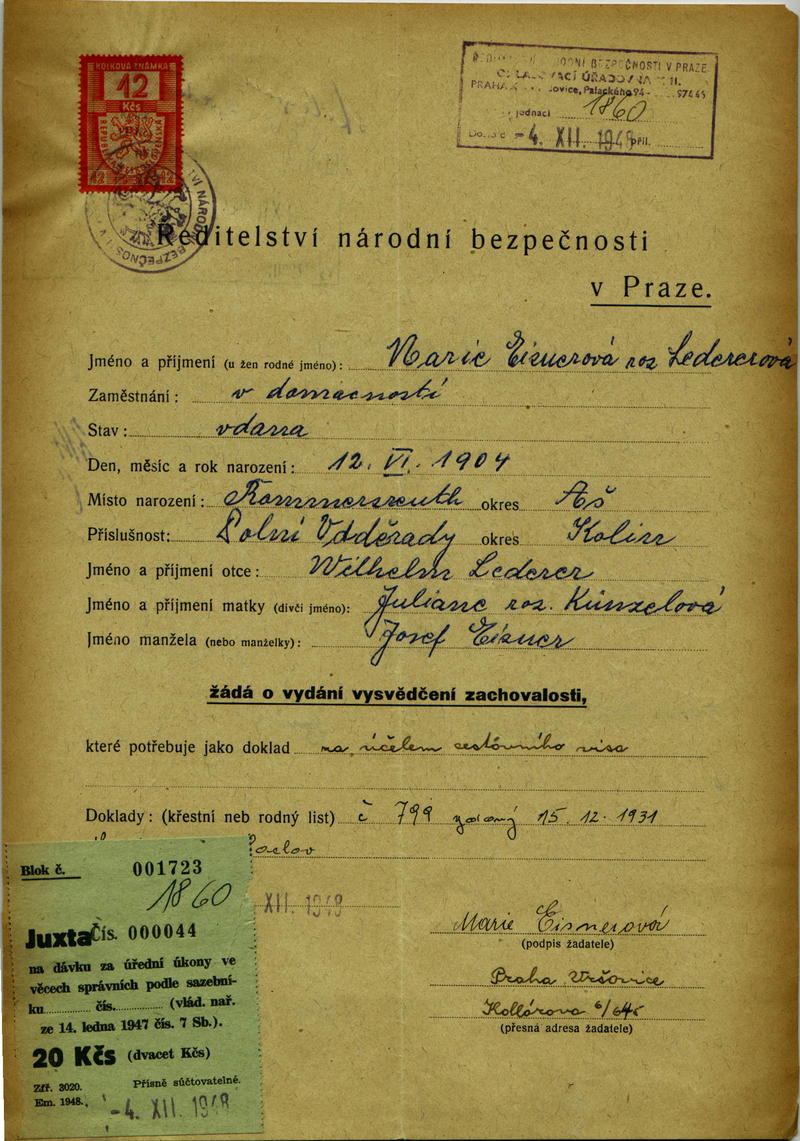 KOLKOVÁ ZNÁMKA
12
Kčs
REPUBLIKA
12 12
NÍ BEZPEČNOSTI V PRAZE
ÚŘADOVNA
PRAHA Palackého 94 - 97445
jednací 1860
- 4. XII. 1948 příl.
Ředitelství národní bezpečnosti
v Praze.
Jméno a příjmení (u žen rodné jméno): Marie Eisnerová roz Ledererová
Zaměstnání: v domacnosti
Stav: vdana
Den, měsíc a rok narození: 12. VI. 1904
Místo narození: Rommersreuth okres Aš
Příslušnost: Dolní okres Kolin
Jméno a příjmení otce: Wilhelm Lederer
Jméno a příjmení matky (dívčí jméno): Juliane roz. Künzelová
Jméno manžela (nebo manželky): Josef Eisner
žádá o vydání vysvědčení zachovalosti,
které potřebuje jako doklad za účelem cestovního visa
Doklady: (křestní neb rodný list) č 799 15. 12. 1931
XII. 1948
Marie Eisnerová
(podpis žadatele)
Praha Vršovice
Kollárova 6/645
(přesná adresa žadatele)
Blok č. 001723
1860
Juxta Čís. 000044
na dávku za úřední úkony ve
věcech správních podle sazební-
ku čís. (vlád. nař.
ze 14. ledna 1947 čís. 7 Sb.).
20 Kčs (dvacet Kčs)
Zff. 3020. Přísně súčtovatelné.
Em. 1948.
- 4. XII. 1948